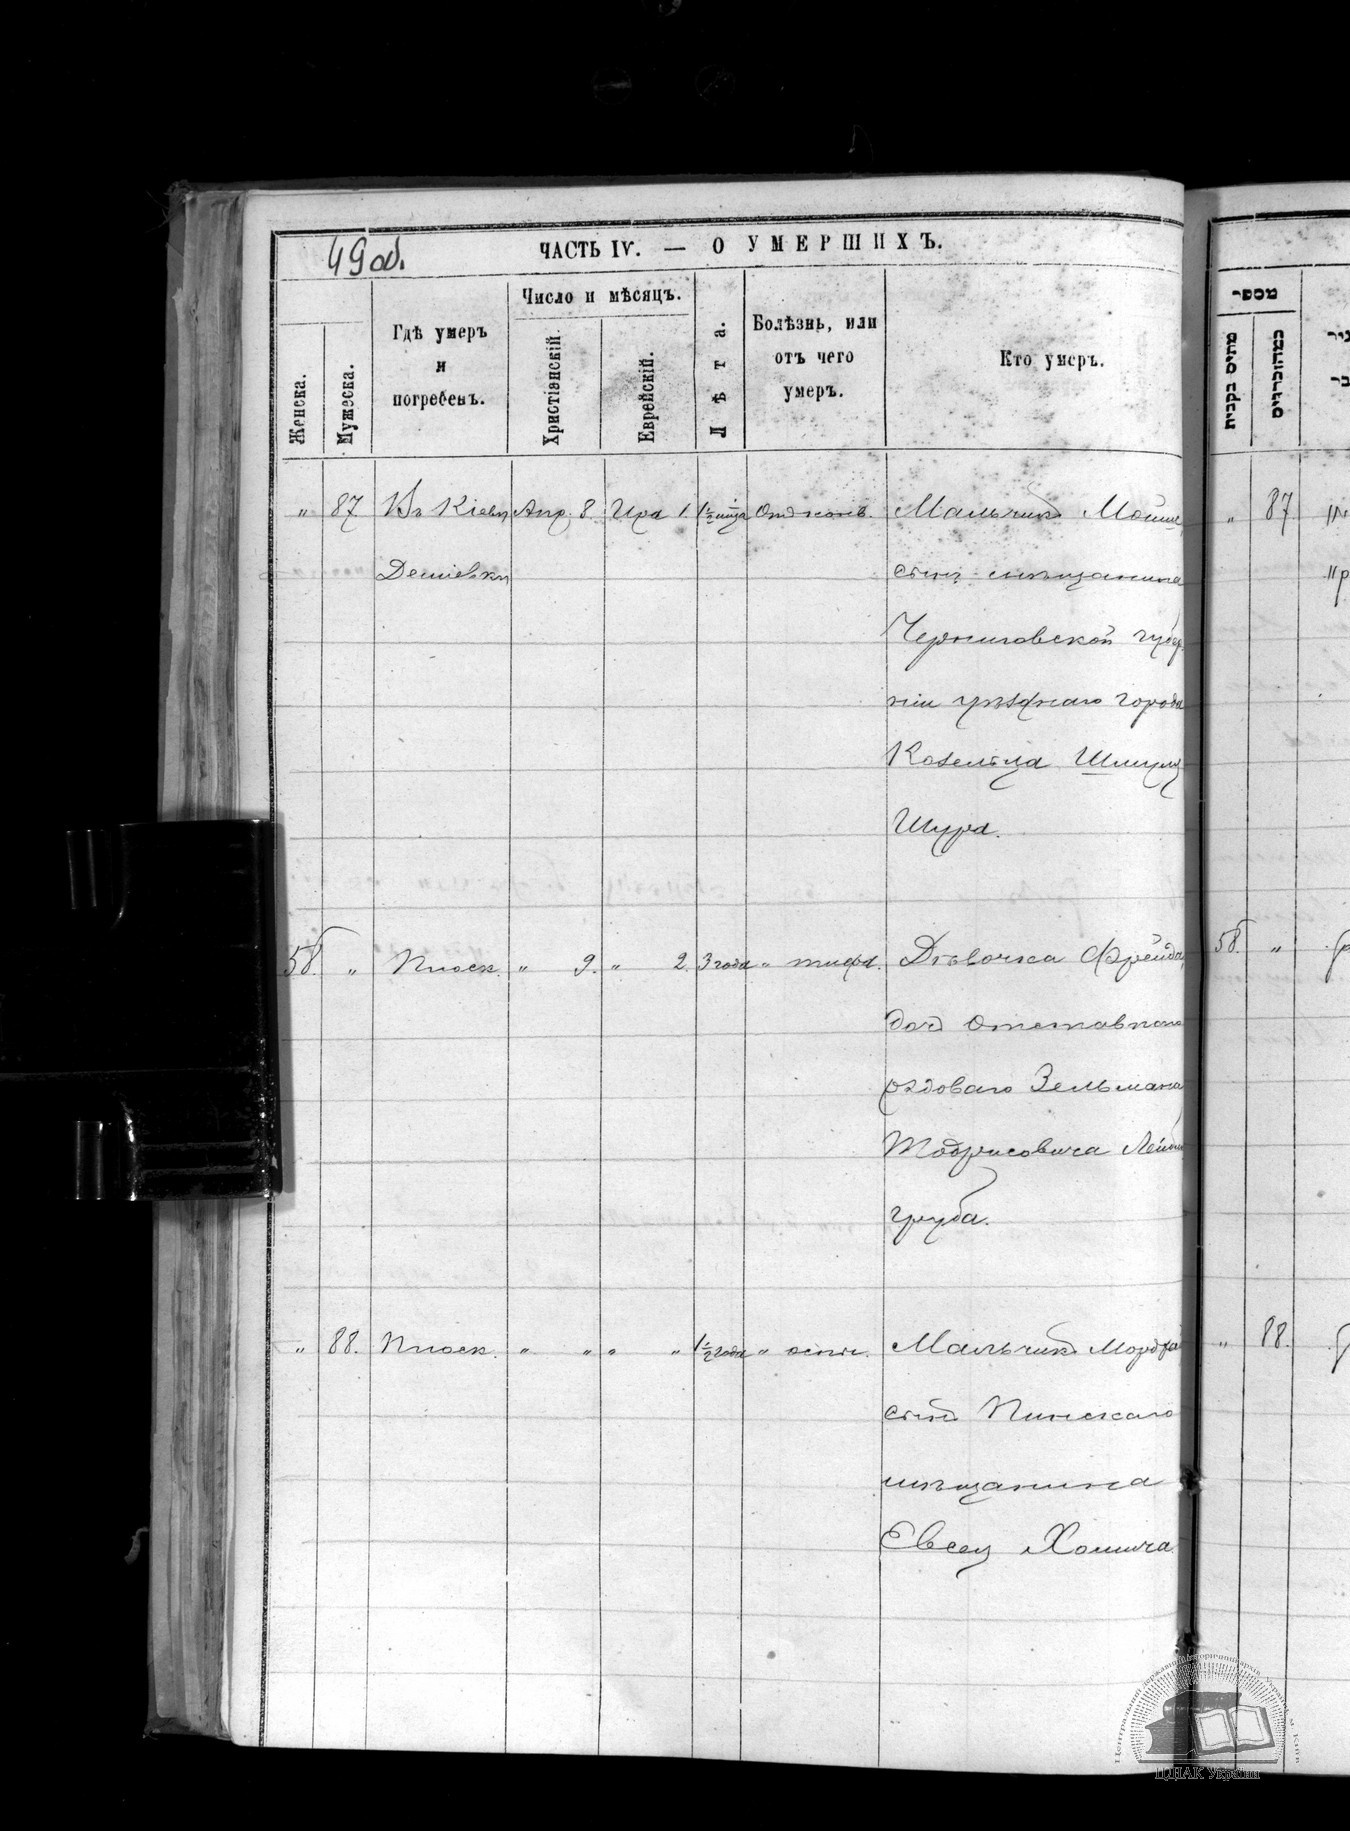 49 об.
ЧАСТЬ IV. — О УМЕРШИХЪ.
Женска.
Мужеска.
Гдѣ умеръ
и
погребенъ.
Число и мѣсяцъ.
Христіанскій.
Еврейскій.
Лѣта.
Болѣзнь, или
отъ чего
умеръ.
Кто умеръ.
מספר
" 87 Въ Кіевѣ Апр. 8. Ира 1 Мальчикъ " 87
сынъ мѣщанина
Черниговской губер
ніи уѣзднаго города
Козельца Шмуля
Шура.
58. " Плоск. " 9. " 2. 3 года " тифа. Дѣвочка Фрейда 58. "
дочь Отставного
рядоваго Зельмана
Тодрисовича
груба.
" 88. Плоск. " " " " 1½ года " оспы. Мальчикъ " 88.
сынъ Пинскаго
мѣщанина
Евсея Хомича
ЦДІАК України